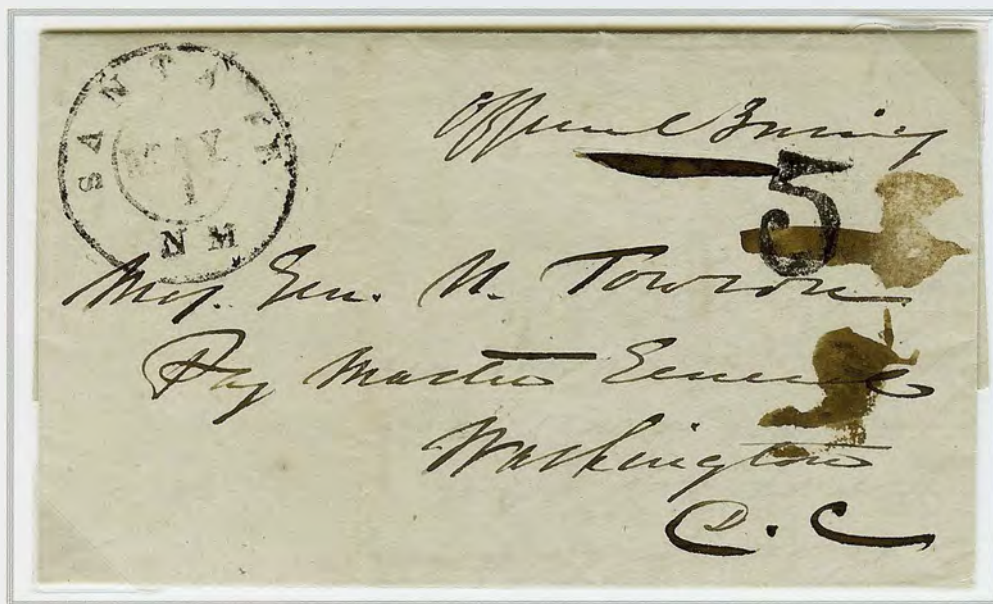 SANTA FE
MAY
1
N M
Official Business
5
Maj. Gen. N. Towson
Pay Master General
Washington
D. C